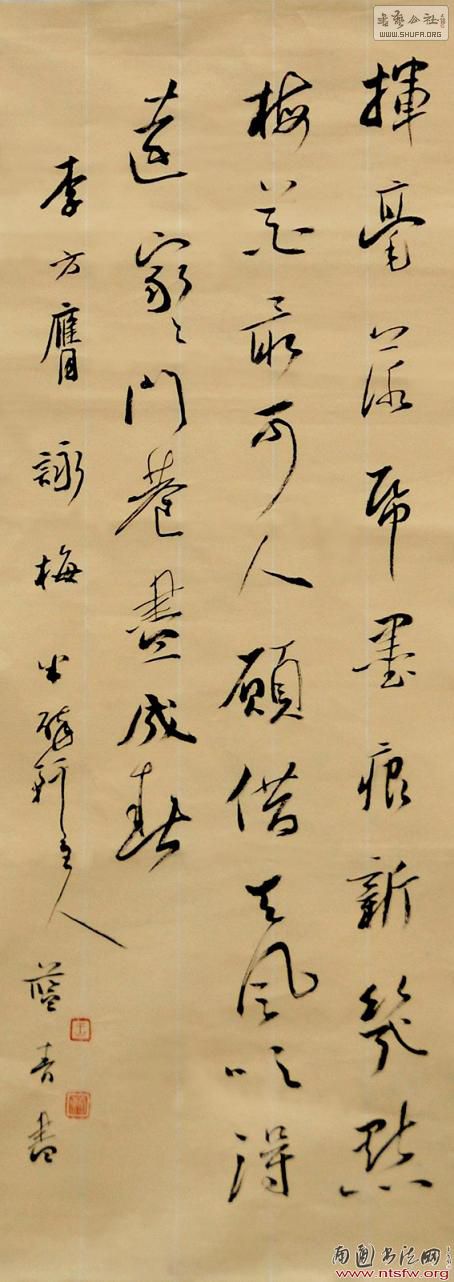 揮毫落帋墨痕新幾點
梅花最可人願借天風吹得
遠家〻門巷盡成春
李方膺詠梅 軒主人
藍青書
書藝公社
WWW.SHUFA.ORG
南通书法网
www.ntsfw.org